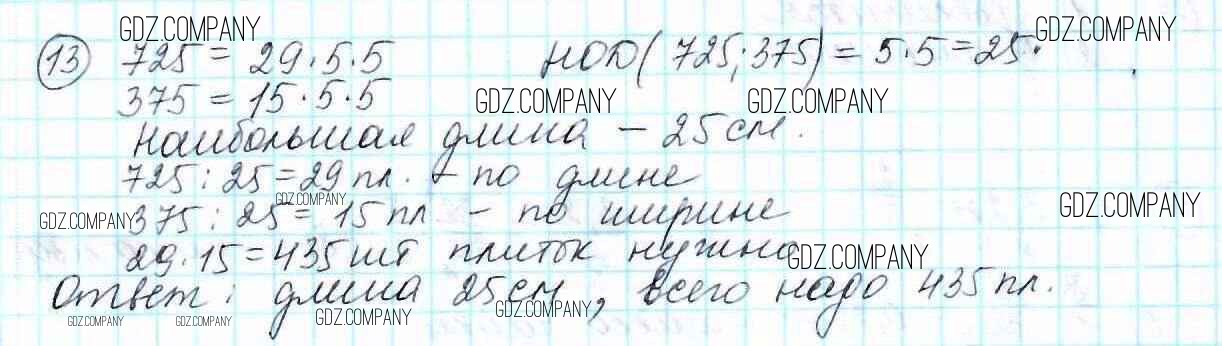 GDZ.COMPANY GDZ.COMPANY
13 725 = 29·5·5 НОД(725;375) = 5·5 = 25.
375 = 15·5·5 GDZ.COMPANY GDZ.COMPANY
Наибольшая длина – 25 см.
725 : 25 = 29 пл. – по длине
GDZ.COMPANY
GDZ.COMPANY 375 : 25 = 15 пл – по ширине GDZ.COMPANY
29·15 = 435 шт плиток нужно GDZ.COMPANY
Ответ: длина 25 см, всего надо 435 пл.
GDZ.COMPANY GDZ.COMPANY GDZ.COMPANY GDZ.COMPANY